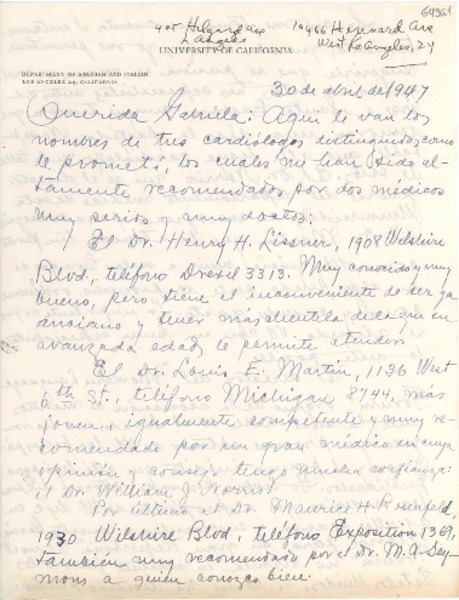 6496
405 Hilgard Ave
L. Angeles
10466 Kinnard Ave
West Los Angeles, 24
UNIVERSITY OF CALIFORNIA
DEPARTMENT OF SPANISH AND ITALIAN
LOS ANGELES 24, CALIFORNIA
30 de abril de 1947
Querida Gabriela: Aquí le van los
nombres de tres cardiólogos distinguidos, como
le prometí, los cuales me han sido al-
tamente recomendados por dos médicos
muy serios y muy doctos:
El Dr. Henry H. Lissner, 1908 Wilshire
Blvd., teléfono Drexel 3313. Muy conocido y muy
bueno, pero tiene el inconveniente de ser ya
anciano y tener más clientela de la que su
avanzada edad le permite atender.
El Dr. Louis E. Martin, 1136 West
6th St., teléfono Michigan 8744, más
joven, igualmente competente y muy re-
comendado por un gran médico en cuya
opinión y consejo tengo mucha confianza:
el Dr. William J. Norris.
Por último el Dr. Maurice H. Rosenfeld,
1930 Wilshire Blvd., teléfono Exposition 1369,
también muy recomendado por el Dr. M. A. Sey-
mons a quien conozco bien.